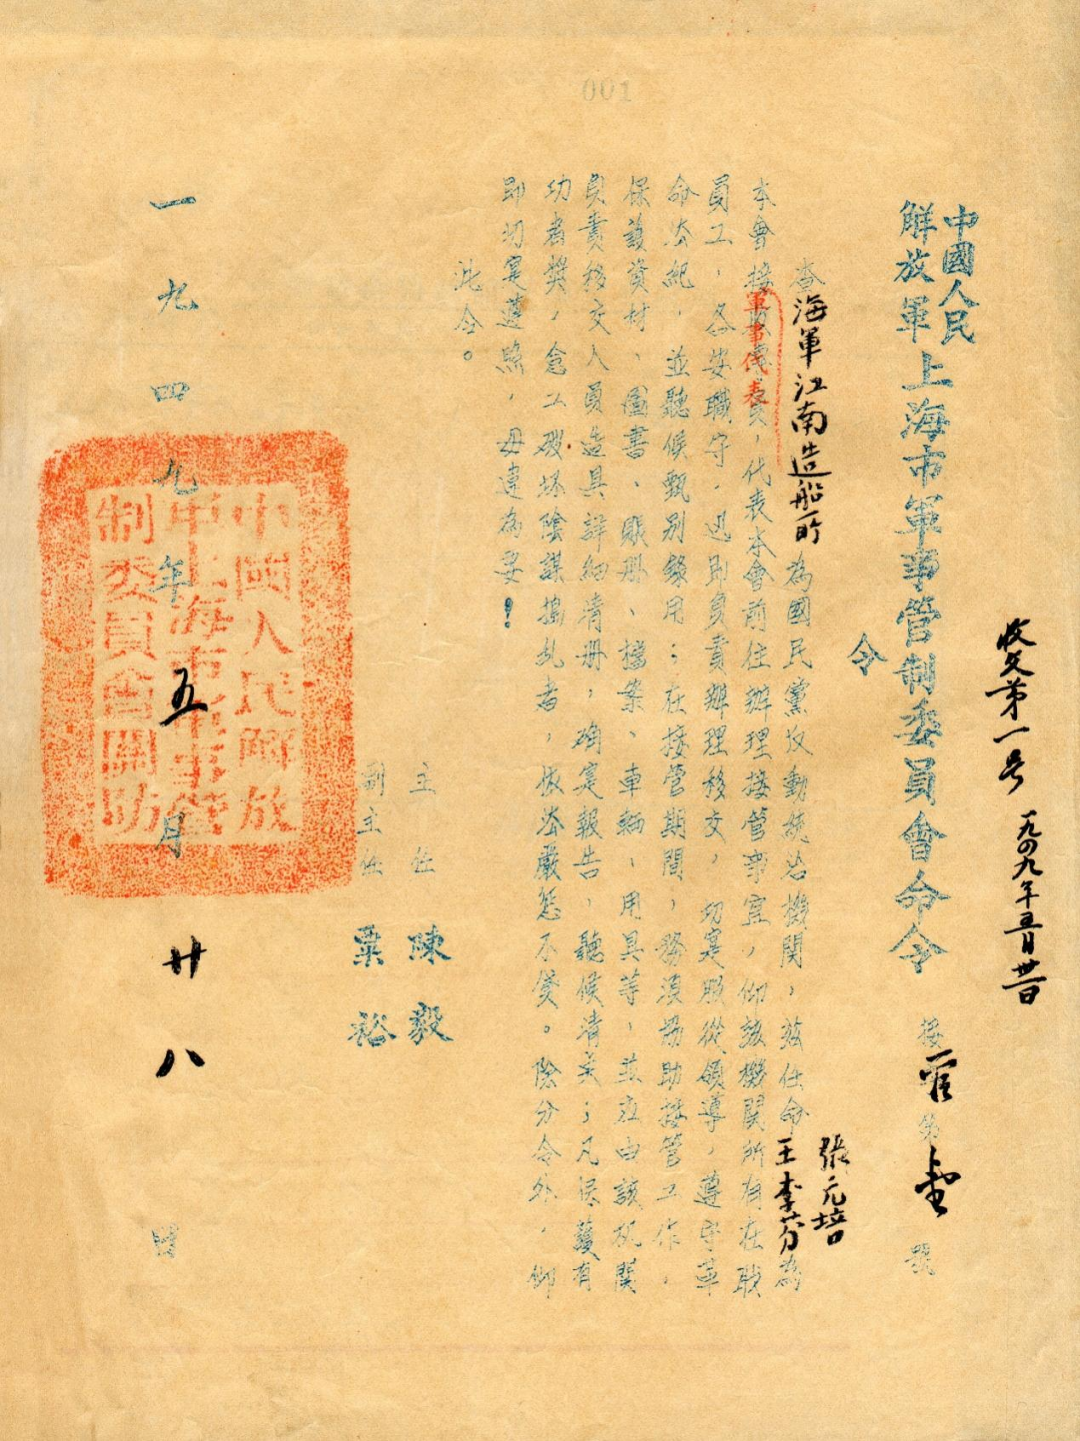 001
收文第一号 一九四九年五月卅日
中國人民
解放軍
上海市軍事管制委員會命令 接管第 號
令
查海軍江南造船所為國民黨反動統治機關，茲任命張元培 王李芬為
本會接 軍事代表，代表本會前往辦理接管事宜，仰該機關所有在職
員工，各安職守，迅即負責辦理移交，切寔服從領導，遵守革
命法紀，並聽候甄別錄用；在接管期間，務須協助接管工作，
保護資材、圖書、賬册、檔案、車輛、用具等，並应由該机関
負責移交人員造具詳細清册，确寔報告，聽候清美；凡保護有
功者獎，怠工破坏陰謀搗乱者，依法嚴惩不貸。除分令外，仰
即切寔遵照，毋違為要！
此令。
主任 陳毅
副主任 粟裕
一九四九年五月廿八日
中國人民解放
軍上海市軍事管
制委員會關防